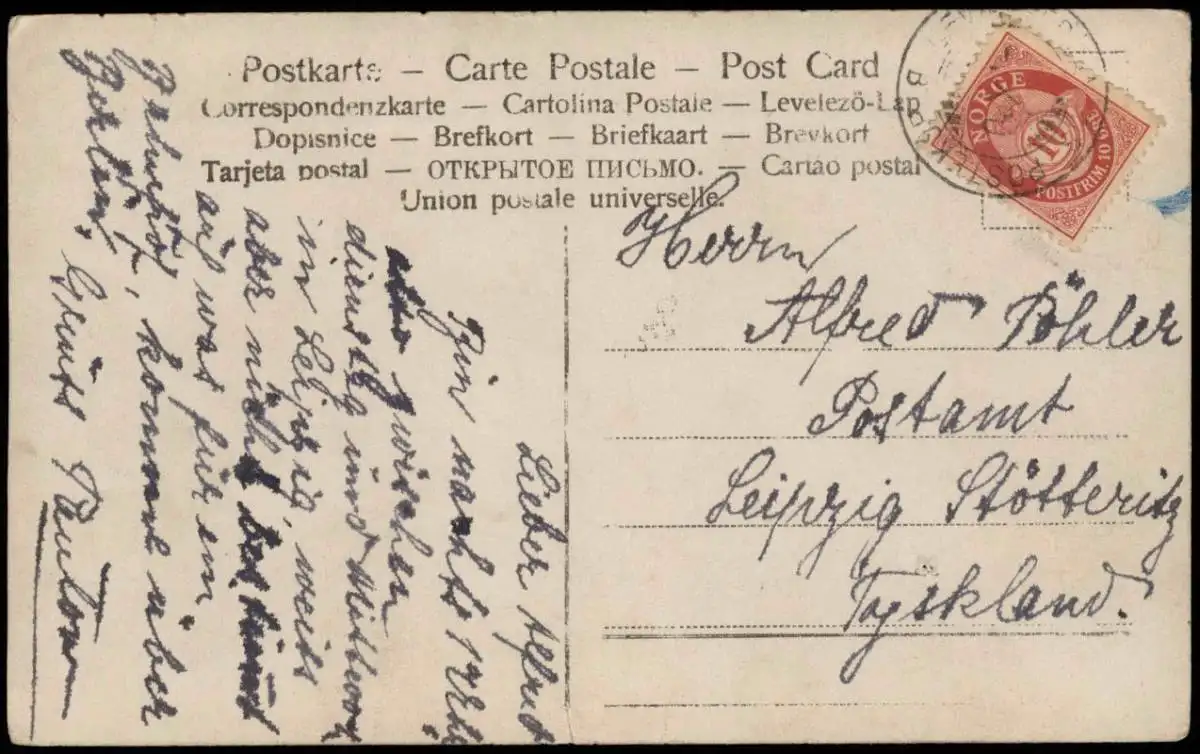 Postkarte – Carte Postale – Post Card
Correspondenzkarte – Cartolina Postale – Levelezö-Lap
Dopisnice – Brefkort – Briefkaart – Brevkort
Tarjeta postal – ОТКРЫТОЕ ПИСЬМО. – Cartão postal
Union postale universelle.
NORGE
10
POSTFRIM. 10 ØRE
Herrn
Alfred Böhler
Postamt
Leipzig Stötteritz
Tyskland.
Lieber Alfred
Bin nachts 1 Uhr
zwischen
dienstag und Mittwoch
in Leipzig, weiss
aber nicht bestimmt
auf was für ein
Bahnhof, komme über
Berlin, Gruss